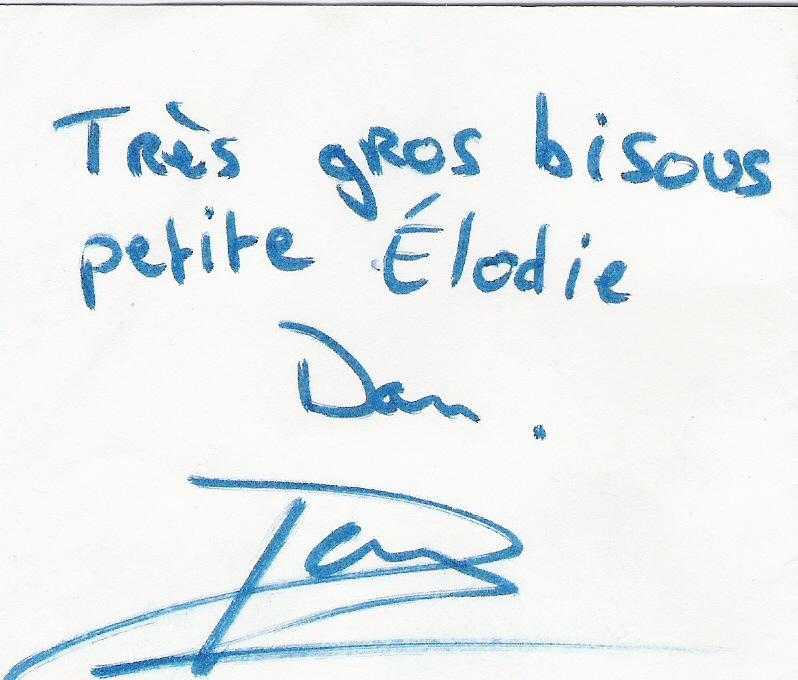 Très gros bisous
petite Élodie
Dan.